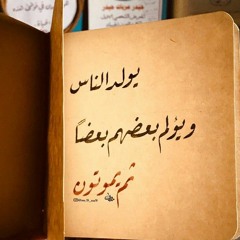 يولد الناس
ويؤلم بعضهم بعضاً
ثم يموتون